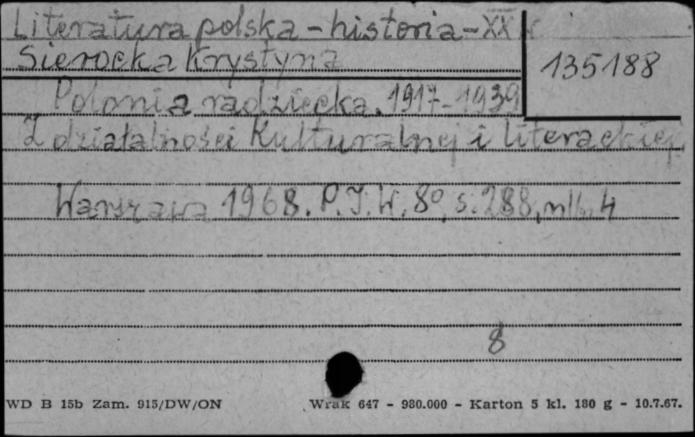 Literatura polska - historia - XX w
Sierocka Krystyna
135188
Polonia radziecka. 1917-1939
Z działalności kulturalnej i literackiej.
Warszawa 1968. P.I.W. 8º, s. 288, nlb. 4
8
WD B 15b Zam. 915/DW/ON
Wrak 647 - 980.000 - Karton 5 kl. 180 g - 10.7.67.